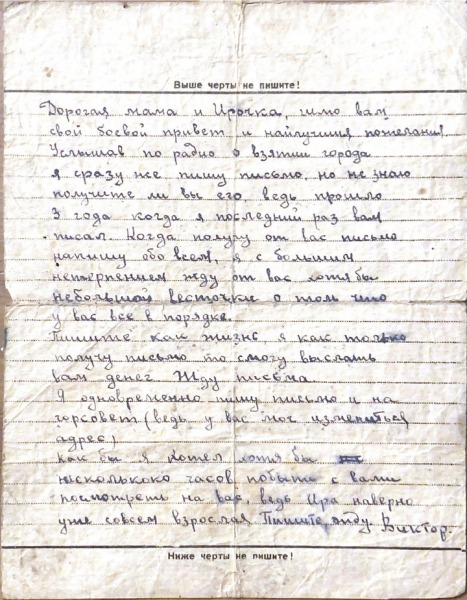 Выше черты не пишите!
Дорогая мама и Ирочка, шлю вам
свой боевой привет и найлучшия пожелания.
Услышав по радио о взятии города
я сразу же пишу письмо, но не знаю
получите ли вы его, ведь прошло
3 года когда я последний раз вам
писал. Когда получу от вас письмо
напишу обо всем, я с большим
нетерпением жду от вас хотя бы
небольшой весточки о том что
у вас все в порядке.
Пишите как жизнь я как только
получу письмо то смогу выслать
вам денег Жду письма
Я одновременно пишу письмо и на
горсовет (ведь у вас мог измениться
адрес)
как бы я хотел хотя бы
нісколькохо часов побыть с вами
посмотреть на вас, ведь Ира наверно
уже совсем взрослая Пишите, жду Виктор.
Ниже черты не пишите!